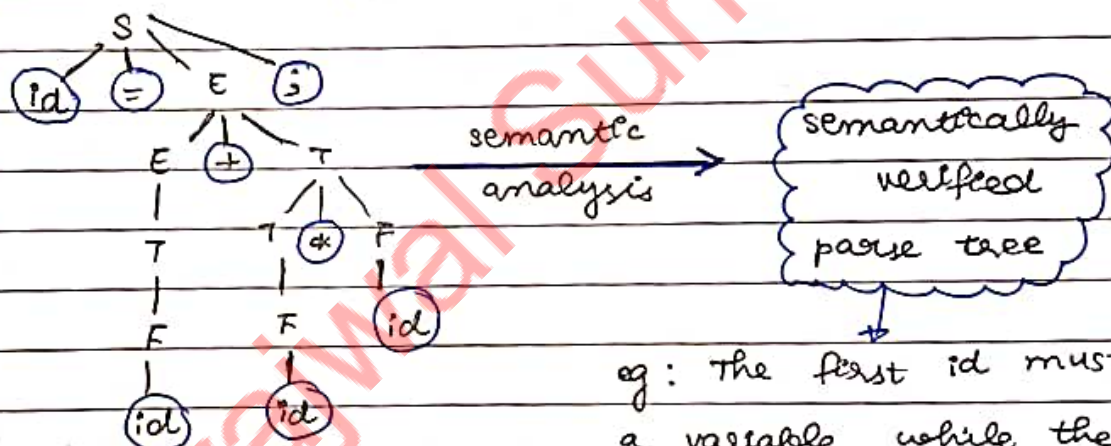 S
id = E ;
E + T
T T * F
F F id
id id
semantic
analysis
semantically
verified
parse tree
eg : The first id mus
a variable while the
ajwal Sur